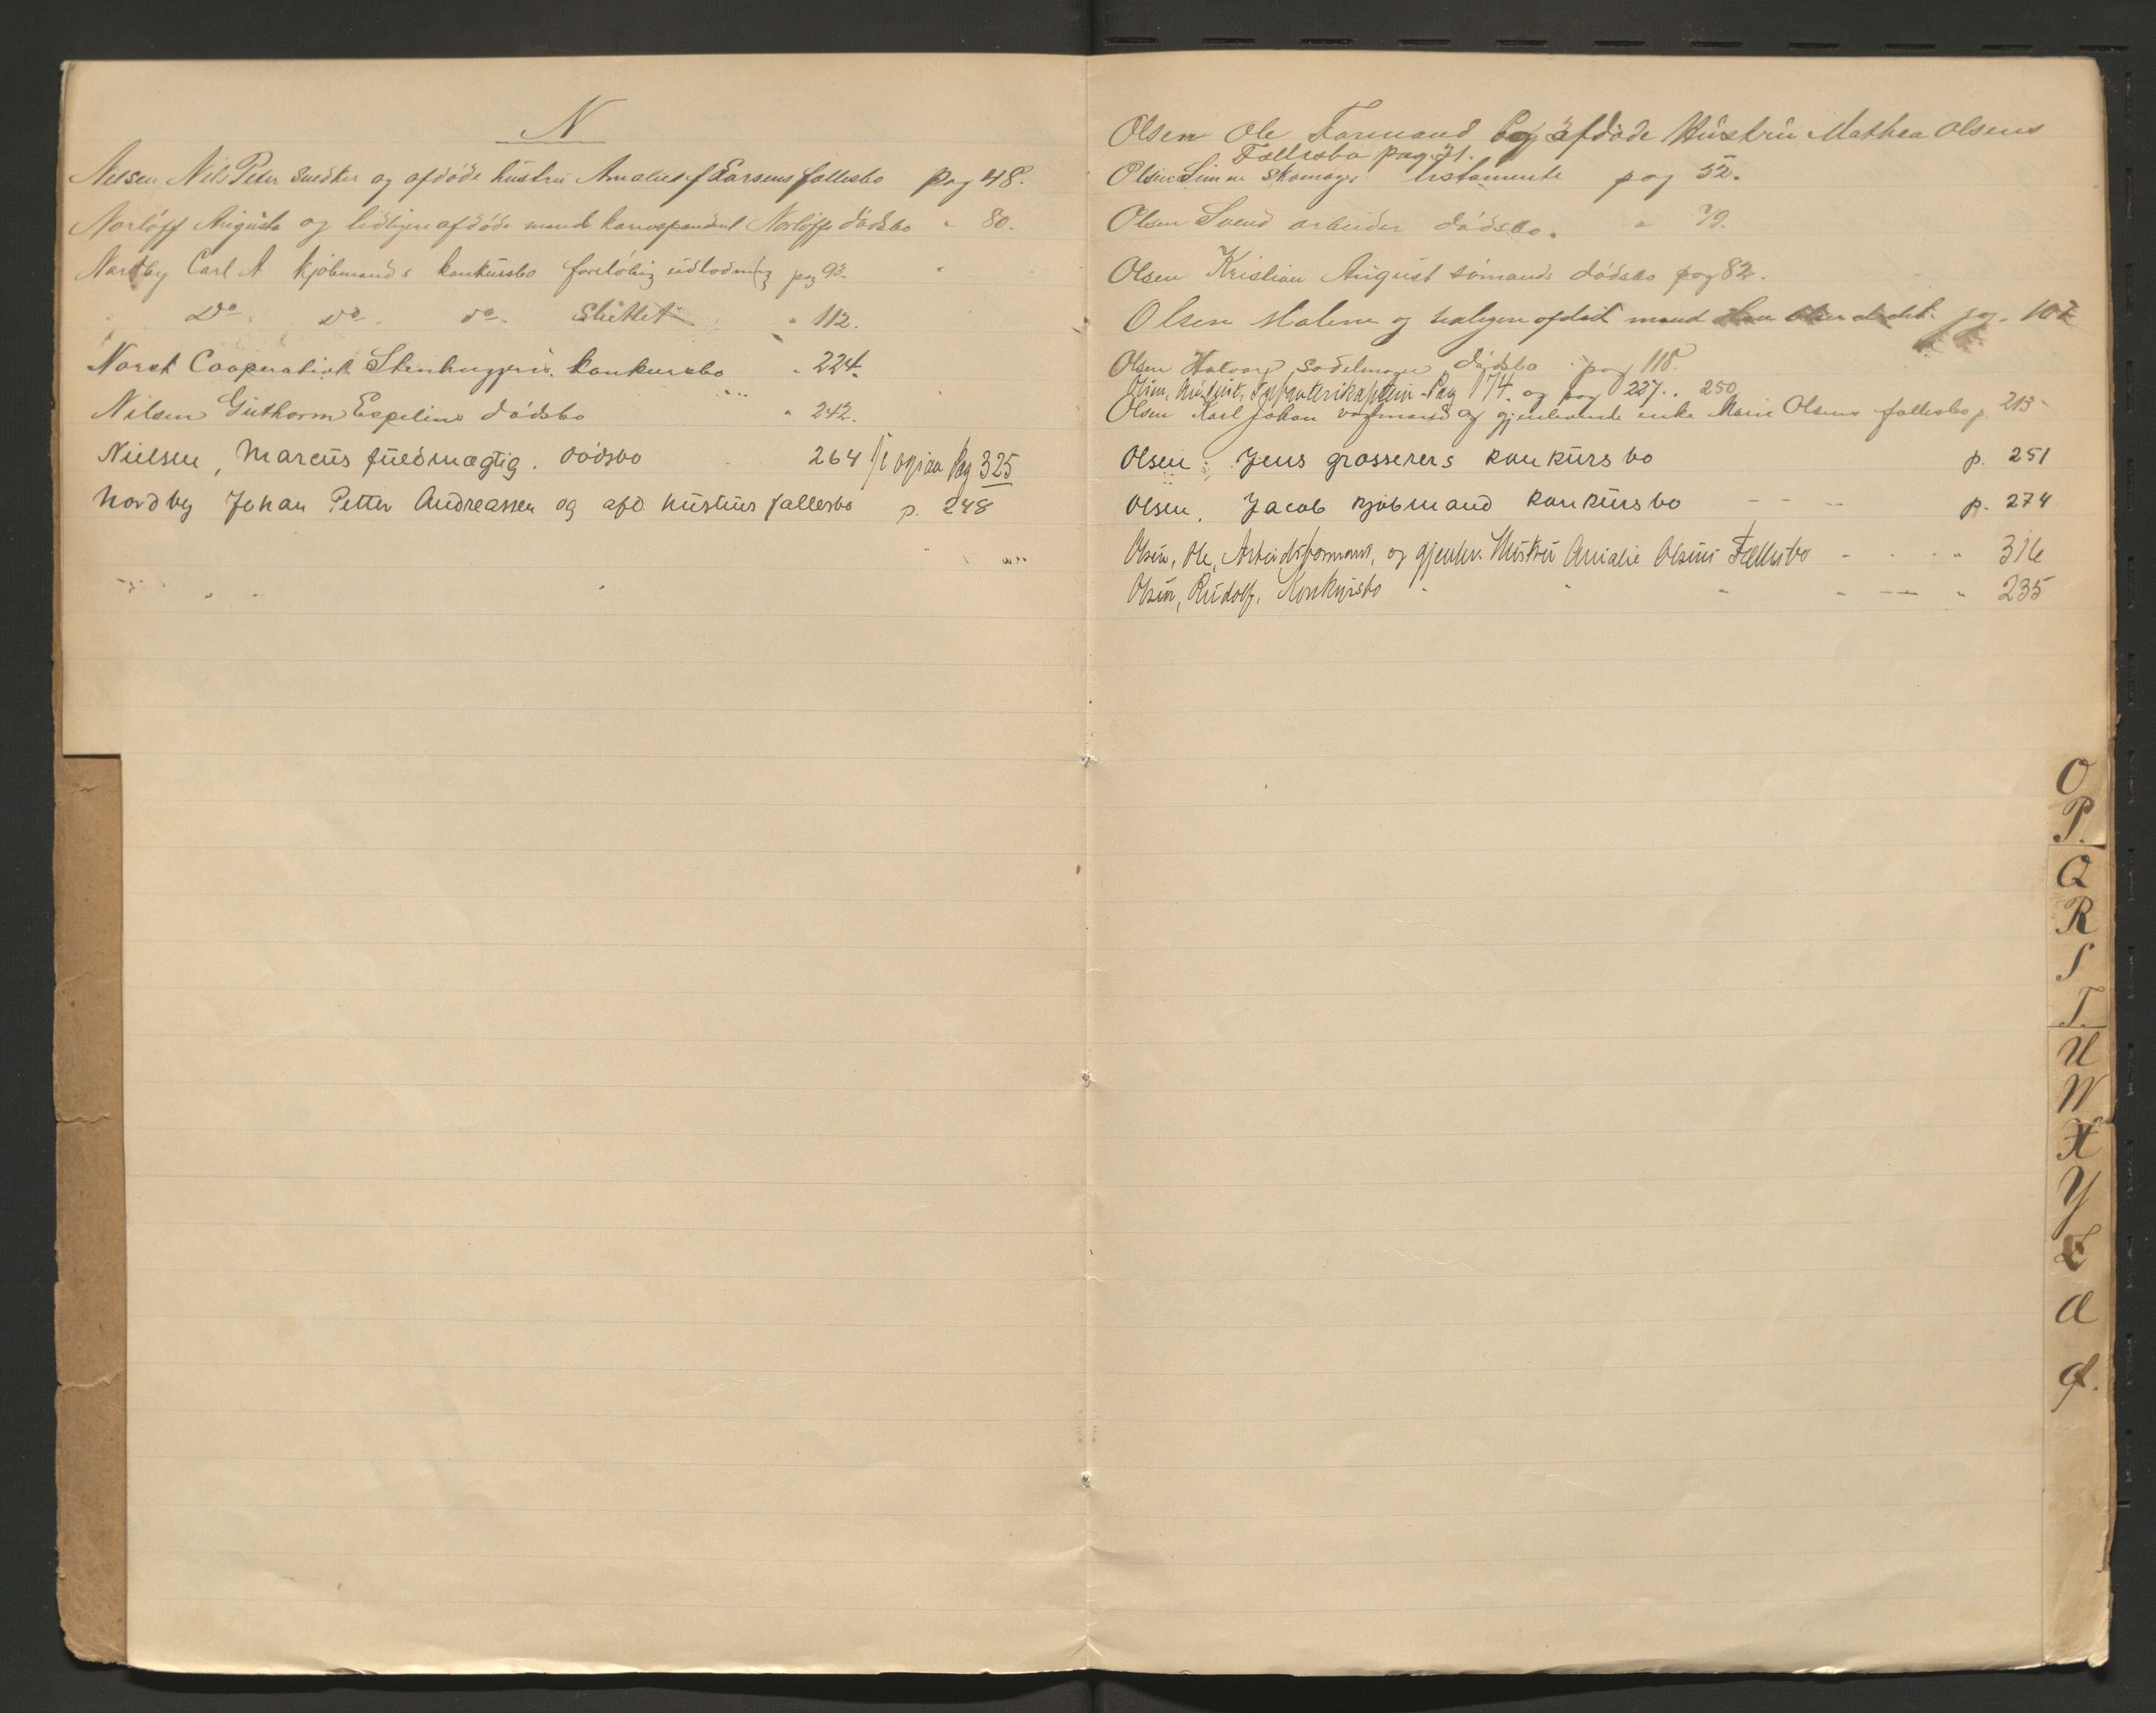 N
Nilsen Nils Peter Snedker og afdöde hüstrü Amalie f Larsens fællesbo pag 48.
Norlöff Aügüsta og tidligere afdöde mand korrespondent Norlöffs dödsbo " 80.
Nordby Carl A kjöbmands konkürsbo forelöbig üdlodning pag 93.
Do Do do Slüttet " 112.
Norsk Cooperativt Stenhuggeris konkursbo " 224.
Nilsen Güthorm Espelins dödsbo " 242.
Nielsen, Marcüs füldmægtig. dödsbo 264 se ogsaa Pag 325
Nordby Johan Petter Andreassen og afd. hüstrüs fallesbo p. 248
Olsen Ole Formand og afdöde Hüstrü Mathea Olsens
Fællesbo pag 71.
Olsen skomager testamente pag 52.
Olsen Svend arbeider dödsbo. " 79.
Olsen Kristian Aügüst sömands dödsbo pag 82.
Olsen Malene og afdöd mand pag. 107
Olsen Halvorg Sadelmager dödsbo pag 118.
Olsen, Infanterikaptein - Pag 174. og pag 227. . 250
Olsen Karl Johan vognmand og gjenlevende enke Marie Olsens fallesbo p. 213
Olsen, Jens grosserers konkürsbo p. 251
Olsen, Jacob kjöbmand konkürsbo - - -- p. 274
Olsen, Ole, Arbeidsformand, og gjenlev. Hüstrü Amalie Olsens Fællesbo - . . " 316
Olsen, Rüdolf, Konkürsbo - - - - -- " 235
O
P.
Q
R
S
T.
U
W
X
Y
Z
Æ
Ø.